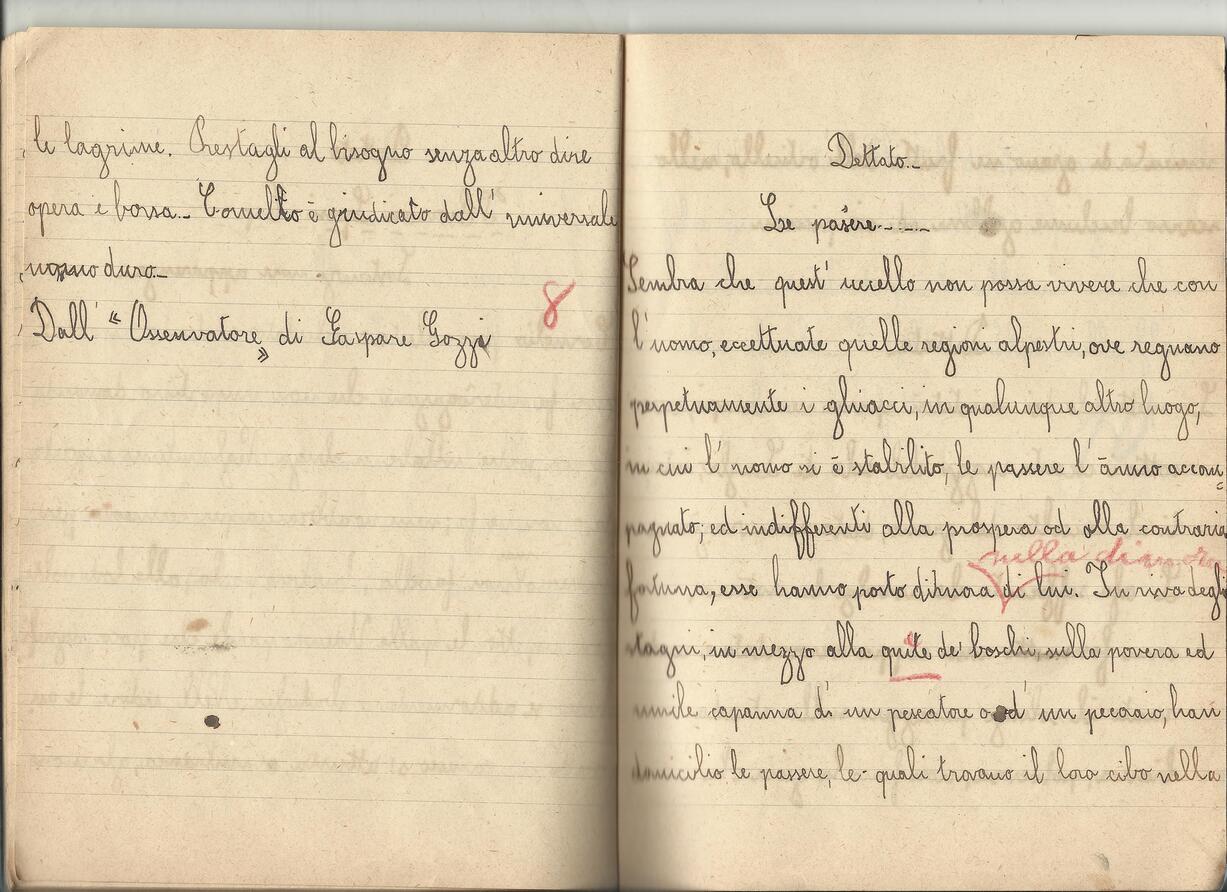 le lagrime. Prestagli al bisogno senza altro dire
opera e borsa.. Cornelio è giudicato dall' universale
uomo duro..
8
Dall' « Osservatore » di Gaspare Gozzi
Dettato..
Le passere.....
Sembra che quest' uccello non possa vivere che con
l'uomo, eccettuate quelle regioni alpestri, ove regnano
perpetuamente i ghiacci, in qualunque altro luogo,
in cui l'uomo si è stabilito, le passere l'ànno accom=
pagnato; ed indifferenti alla prospera od alla contraria
nella dimora
fortuna, esse hanno posto dimora di lui. In riva degli
stagni, in mezzo alla quite de' boschi, sulla povera ed
umile capanna d' un pescatore o d' un pecoraio, han
domicilio le passere, le quali trovano il loro cibo nella